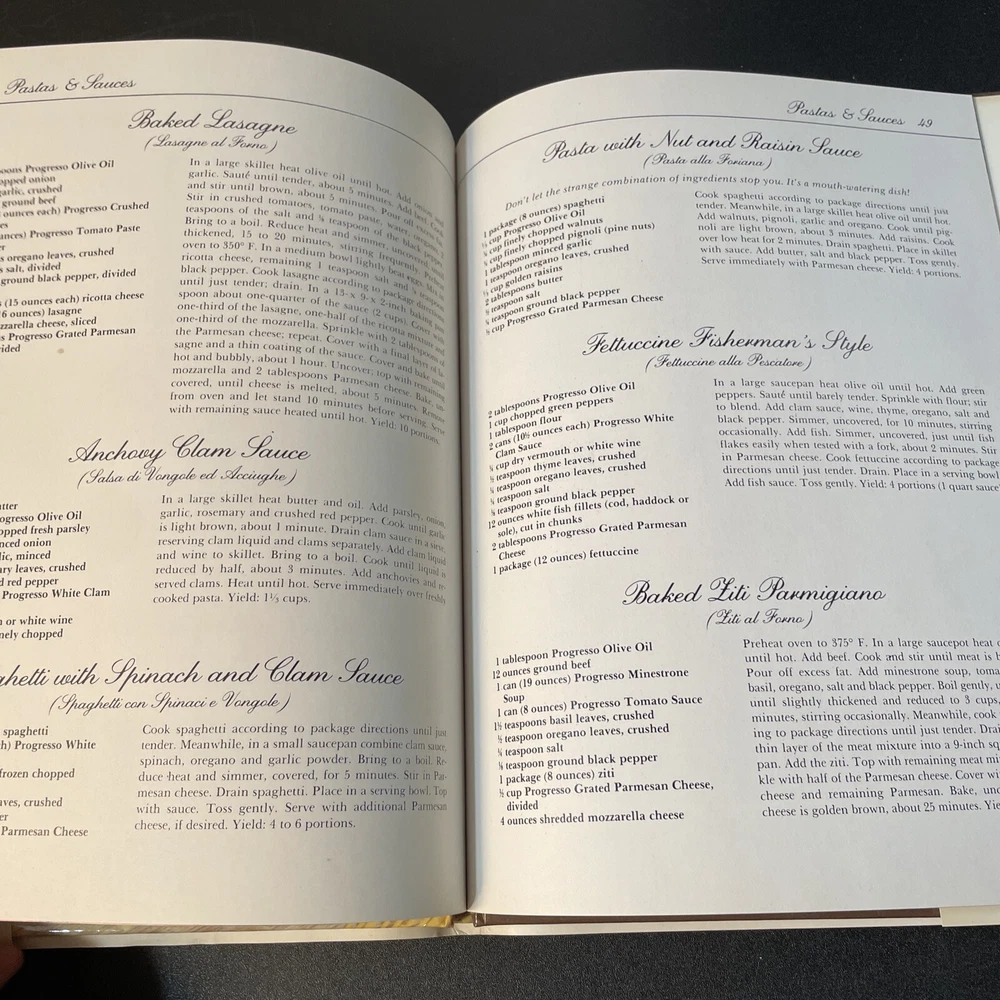 Pastas & Sauces
Baked Lasagne
(Lasagne al Forno)
oons Progresso Olive Oil
opped onion
garlic, crushed
ground beef
ounces each) Progresso Crushed
es
ances) Progresso Tomato Paste
er
s oregano leaves, crushed
s salt, divided
ground black pepper, divided
s (15 ounces each) ricotta cheese
6 ounces) lasagne
zzarella cheese, sliced
ns Progresso Grated Parmesan
vided
In a large skillet heat olive oil until hot. Add onion and
garlic. Sauté until tender, about 5 minutes. Add beef. Cook
and stir until brown, about 5 minutes. Pour off excess fat.
Stir in crushed tomatoes, tomato paste, water, oregano, 2
teaspoons of the salt and ¼ teaspoon of the black pepper.
Bring to a boil. Reduce heat and simmer, uncovered, until
thickened, 15 to 20 minutes, stirring frequently. Preheat
oven to 350° F. In a medium bowl lightly beat eggs. Mix in
ricotta cheese, remaining 1 teaspoon salt and
black pepper. Cook lasagne according to package directions
until just tender; drain. In a 15- x 9- x 2-inch baking pan
spoon about one-quarter of the sauce (2 cups). Cover with
one-third of the lasagne, one-half of the ricotta mixture and
one-third of the mozzarella. Sprinkle with 2 tablespoons of
the Parmesan cheese; repeat. Cover with a final layer of la-
sagne and a thin coating of the sauce. Cover and bake until
hot and bubbly, about 1 hour. Uncover; top with remaining
mozzarella and 2 tablespoons Parmesan cheese. Bake, un-
covered, until cheese is melted, about 5 minutes. Remove
from oven and let stand 10 minutes before serving. Serve
with remaining sauce heated until hot. Yield: 10 portions.
Anchovy Clam Sauce
(Salsa di Vongole ed Acciughe)
utter
ogresso Olive Oil
opped fresh parsley
nced onion
lic, minced
ary leaves, crushed
d red pepper
Progresso White Clam
n or white wine
nely chopped
In a large skillet heat butter and oil. Add parsley, onion,
garlic, rosemary and crushed red pepper. Cook until garlic
is light brown, about 1 minute. Drain clam sauce in a sieve,
reserving clam liquid and clams separately. Add clam liquid
and wine to skillet. Bring to a boil. Cook until liquid is
reduced by half, about 3 minutes. Add anchovies and re-
served clams. Heat until hot. Serve immediately over freshly
cooked pasta. Yield: 1⅓ cups.
ghetti with Spinach and Clam Sauce
(Spaghetti con Spinaci e Vongole)
spaghetti
ch) Progresso White
frozen chopped
aves, crushed
er
Parmesan Cheese
Cook spaghetti according to package directions until just
tender. Meanwhile, in a small saucepan combine clam sauce,
spinach, oregano and garlic powder. Bring to a boil. Re-
duce heat and simmer, covered, for 5 minutes. Stir in Par-
mesan cheese. Drain spaghetti. Place in a serving bowl. Top
with sauce. Toss gently. Serve with additional Parmesan
cheese, if desired. Yield: 4 to 6 portions.
Pastas & Sauces 49
Pasta with Nut and Raisin Sauce
(Pasta alla Foriana)
Don't let the strange combination of ingredients stop you. It's a mouth-watering dish!
1 package (8 ounces) spaghetti
⅓ cup Progresso Olive Oil
cup finely chopped walnuts
cup finely chopped pignoli (pine nuts)
1 tablespoon minced garlic
1 teaspoon oregano leaves, crushed
⅓ cup golden raisins
2 tablespoons butter
½ teaspoon salt
⅛ teaspoon ground black pepper
½ cup Progresso Grated Parmesan Cheese
Cook spaghetti according to package directions until just
tender. Meanwhile, in a large skillet heat olive oil until hot.
Add walnuts, pignoli, garlic and oregano. Cook until pig-
noli are light brown, about 3 minutes. Add raisins. Cook
over low heat for 2 minutes. Drain spaghetti. Place in skillet
with sauce. Add butter, salt and black pepper. Toss gently.
Serve immediately with Parmesan cheese. Yield: 4 portions.
Fettuccine Fisherman's Style
(Fettuccine alla Pescatore)
2 tablespoons Progresso Olive Oil
1 cup chopped green peppers
1 tablespoon flour
2 cans (10½ ounces each) Progresso White
Clam Sauce
¼ cup dry vermouth or white wine
½ teaspoon thyme leaves, crushed
¼ teaspoon oregano leaves, crushed
¼ teaspoon salt
⅛ teaspoon ground black pepper
12 ounces white fish fillets (cod, haddock or
sole), cut in chunks
2 tablespoons Progresso Grated Parmesan
Cheese
1 package (12 ounces) fettuccine
In a large saucepan heat olive oil until hot. Add green
peppers. Sauté until barely tender. Sprinkle with flour; stir
to blend. Add clam sauce, wine, thyme, oregano, salt and
black pepper. Simmer, uncovered, for 10 minutes, stirring
occasionally. Add fish. Simmer, uncovered, just until fish
flakes easily when tested with a fork, about 2 minutes. Stir
in Parmesan cheese. Cook fettuccine according to package
directions until just tender. Drain. Place in a serving bowl
Add fish sauce. Toss gently. Yield: 4 portions (1 quart sauce
Baked Ziti Parmigiano
(Ziti al Forno)
1 tablespoon Progresso Olive Oil
12 ounces ground beef
1 can (19 ounces) Progresso Minestrone
Soup
1 can (8 ounces) Progresso Tomato Sauce
1½ teaspoons basil leaves, crushed
½ teaspoon oregano leaves, crushed
¼ teaspoon salt
⅛ teaspoon ground black pepper
1 package (8 ounces) ziti
½ cup Progresso Grated Parmesan Cheese,
divided
4 ounces shredded mozzarella cheese
Preheat oven to 375° F. In a large saucepot heat o
until hot. Add beef. Cook and stir until meat is b
Pour off excess fat. Add minestrone soup, toma
basil, oregano, salt and black pepper. Boil gently, u
until slightly thickened and reduced to 3 cups,
minutes, stirring occasionally. Meanwhile, cook
ing to package directions until just tender. Drai
thin layer of the meat mixture into a 9-inch sq
pan. Add the ziti. Top with remaining meat mi
kle with half of the Parmesan cheese. Cover wi
cheese and remaining Parmesan. Bake, unc
cheese is golden brown, about 25 minutes. Yie